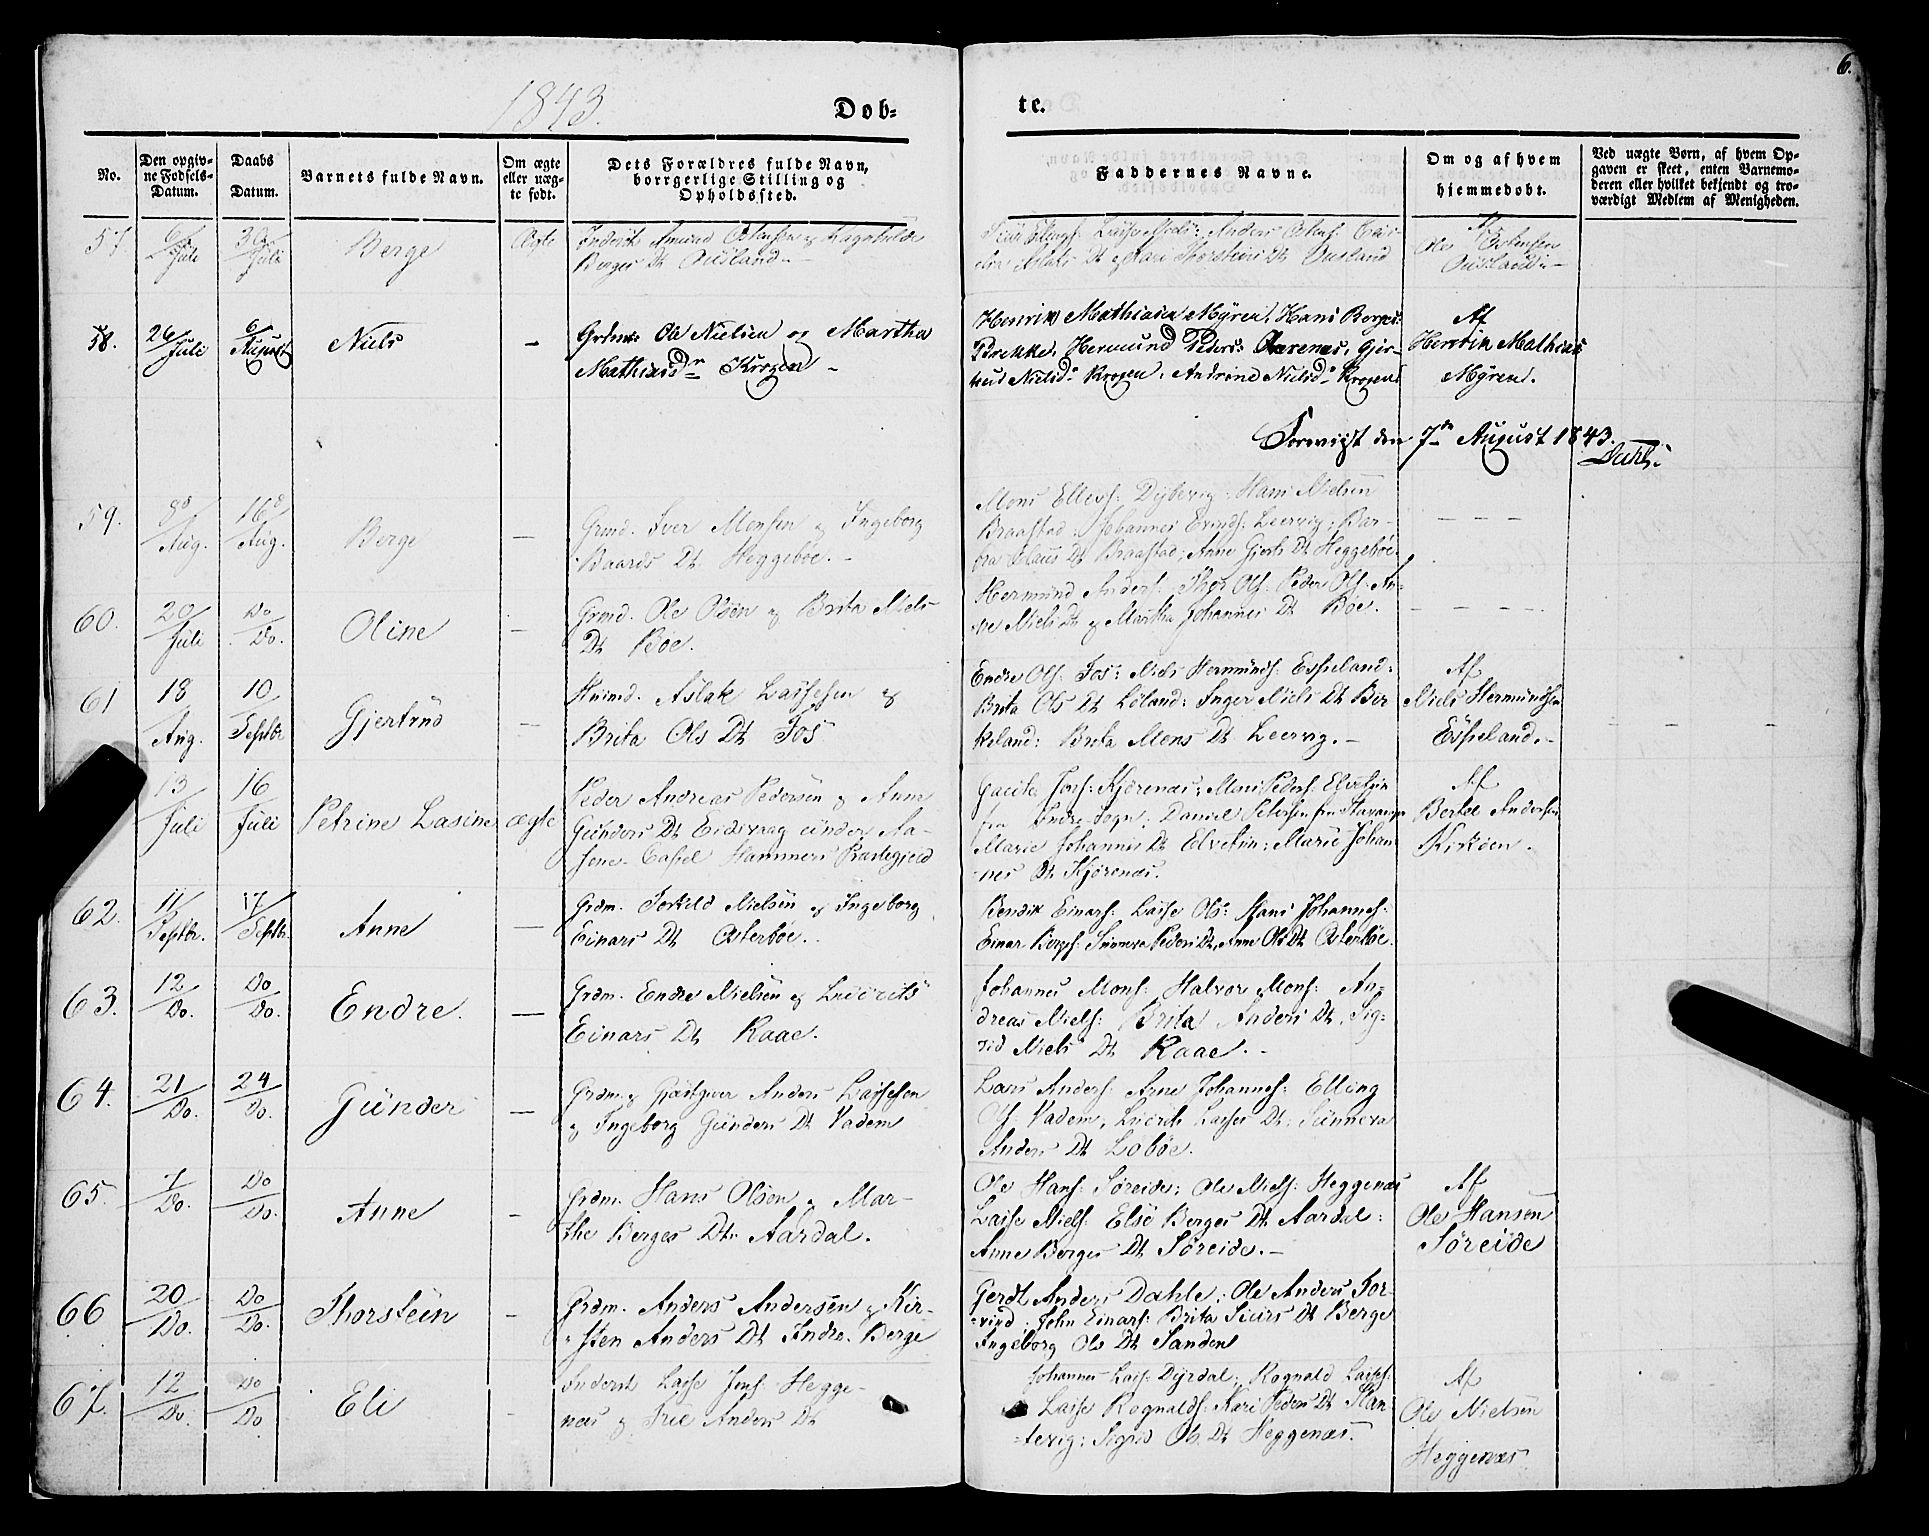 6.
1843.
Dob=
te.
No.
Den opgiv=
ne Fødsels=
Datum.
Daabs
Datum.
Barnets fulde Navn.
Om ægte
eller uæg=
te født.
Dets Forældres fulde Navn,
borrgerlige Stilling og
Opholdssted.
Faddernes Navne.
Om og af hvem
hjemmedøbt.
Ved uægte Børn, af hvem Op=
gaven er skeet, enten Barnemo=
deren eller hvilket bekjendt og tro=
værdigt Medlem af Menigheden.
57 6/Juli 30/Juli Berge Ægte
Inderste Amund Ostensen og Ragnhilde
Berges Dt Ousland
Anders
Thorsteins Dt Ousland
Af
Ole Ostensen
Ousland
58. 26/Juli 6/August Niels -
Grdm: Ole Nielsen og Martha
Mathiasdr Krogen -
Henrik Mathiasen Myren, Hans Berges:
Brekke, Hermund Peders: Aarenes, Gjer-
trud Nielsd. Krogen, Andrine Nielsd. Krogen
Af
Henrik Mathias
Myren.
den 7de August 1843.
Dahl:
59. 8d/Aug. 16d/Aug. Berge -
Grmd. Iver Monsen og Ingeborg
Baards Dt Heggebøe. -
Mons Ellefs: Dybevig: Hans Nielsen
Braastad: Johannes Leervig: Bar-
bra Dt Braastad; Anne Gjerts Dt Heggebøe.
60. 20/Juli Do/Do. Oline -
Grmd. Ole Olsen og Brita Niels
Dt Bøe.
Hermund Anders: Thor Ols: Peder Ols: An-
ne Niels Dt og Martha Johannes Dt Bøe.
61 18/Aug. 10/Septbr Gjertrud -
Huusmd. Aslak Lassesen og
Brita Ols Dt Fos
Endre Ols: Fos: Niels Hermunds: Espeland:
Brita Ols Dt Løland: Inger Niels Dt Bir
keland: Brita Mons Dt Leervig. -
Af
Niels Hermundsen
Espeland. -
13/Juli 16/Juli Petrine Lasine ægte
Peder Andreas Pedersen og Anne
Gunders Dt Eidsvaag under Aa-
sene Capel Hammers Præstegjeld
Jons: Kjørenæs; Mons Peders: Elvetun
fra Indre Sogn; Daniel Petersen fra Stavanger
Marie Johannes Dt Elvetun: Marie Johan
nes Dt Kjørenæs.
Af
Bertel Andersen
Kirkøen.
62. 11/Septbr. 17/Septbr. Anne -
Grdm. Torkild Nielsen og Ingeborg
Einars Dt Osterbøe.
Bendik Einars: Lasse Ols: Hans Johannes:
Einar Sunneva Peders Dt, Anne Ols Dt Osterbøe.
63. 12/Do. Do/Do. Endre. -
Grdm. Endre Nielsen og
Einars Dt Raae.
Johannes Mons: Halvor Mons: An=
dreas Niels: Brita Anders Dt, Sig=
rid Niels Dt Raae. -
64. 21/Do. 24/Do. Gunder -
Grdm. og Gjæstgiver Anders Lassesen
og Ingeborg Gunders Dt Vadem
Lars Anders: Arne Johannes: Elling
Ols: Vadem, Lasses Dt; Sunneva
Anders Dt Lobøe.
65. 7/Do. Do/Do. Anne -
Grdm. Hans Olsen og Mar-
the Berges Dtr Aardal.
Ole Hans: Søreide; Ole Niels: Heggenæs
Lasse Niels: Elsé Berges Dt Aardal:
Anne Berges Dt Søreide. -
Af
Ole Hansen
Søreide
66 20/Do. Do/Do. Thorstein -
Grdm. Anders Andersen og Kir-
sten Anders Dt Indre Berge
Gerdt Anders Dahle; Ole Anders Tor-
vind; John Einars: Brita Siurs Dt Berge
Ingeborg Ols Dt Sanden
67. 12/Do. Do/Do Eli -
Inderst Lasse Jons: Hegge-
næs og Anders Dt
Johannes Lass: Dyrdal; Rognald Lasses:
Lasse Rognalds: Kari Peders Dt Slan-
tevig; Sigrid Ols Dt Heggenæs.
Af
Ole Nielsen
Heggenæs